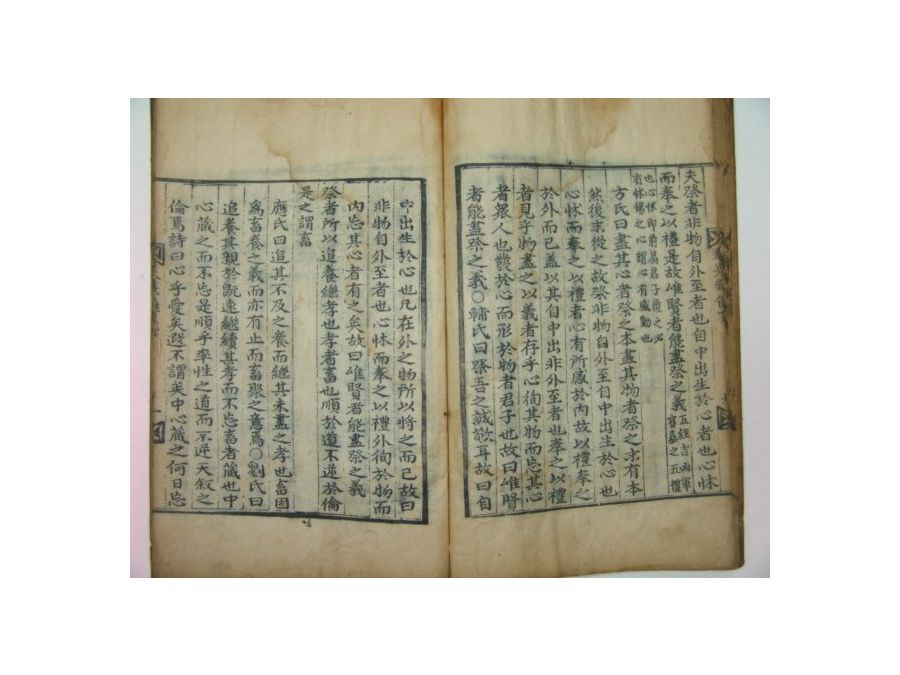 夫祭者非物自外至者也自中出生於心者也心怵
而奉之以禮是故唯賢者能盡祭之義五經吉凶軍賓嘉之五禮
也心怵即前篇君子履之必有怵惕之心謂心有感動也
方氏曰盡其心者祭之本盡其物者祭之末有本
然後末從之故祭非物自外至自中出生於心也
心怵而奉之以禮者心有所感於內故以禮奉之
於外而已盖以其自中出非外至者也奉之以禮
者見乎物盡之以義者存乎心徇其物而忘其心
者衆人也發於心而形於物者君子也故曰唯賢
者能盡祭之義○輔氏曰發吾之誠敬耳故曰自
中出生於心也凡在外之物所以將之而已故曰
非物自外至者也心怵而奉之以禮外徇於物而
內忘其心者有之矣故曰唯賢者能盡祭之義
祭者所以追養繼孝也孝者畜也順於道不逆於倫
是之謂畜
應氏曰追其不及之養而繼其未盡之孝也畜固
爲畜養之義而亦有止而畜聚之意焉○劉氏曰
追養其親於旣遠繼續其孝而不忘畜者藏也中
心藏之而不忘是順乎率性之道而不逆天叙之
倫焉詩曰心乎愛矣遐不謂矣中心藏之何日忘